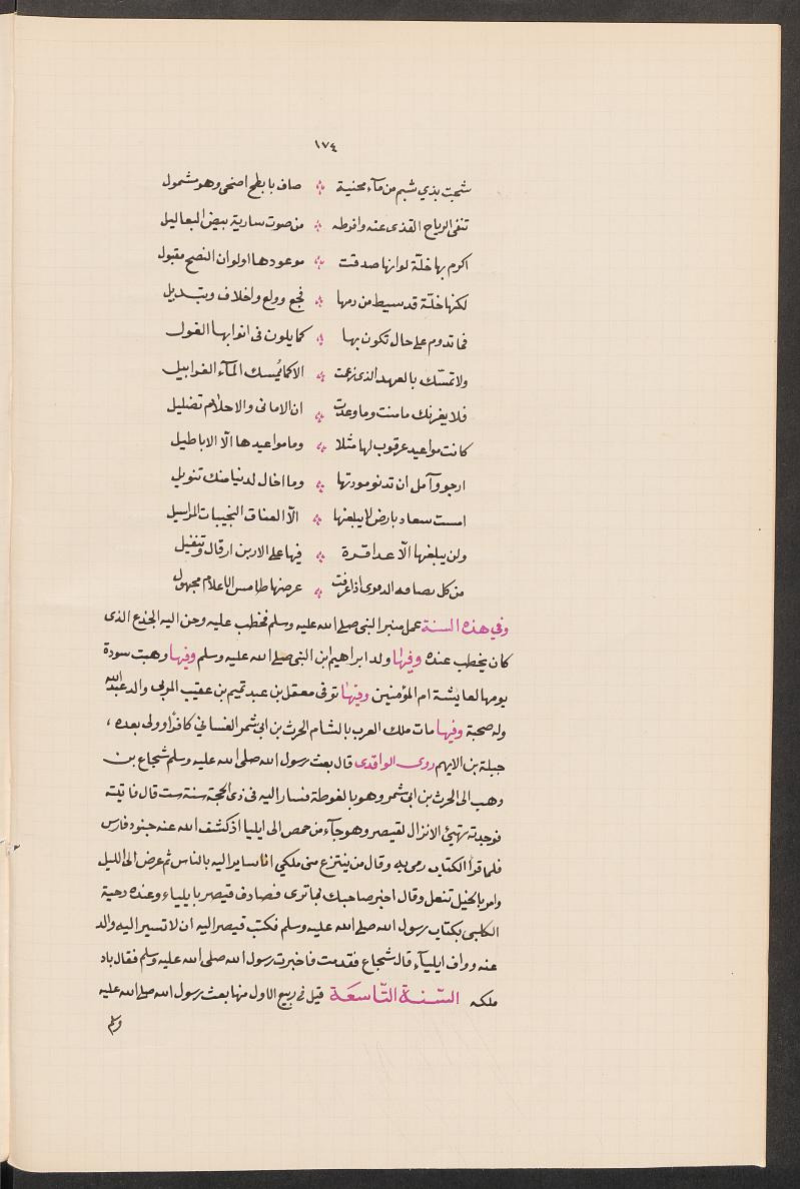 ١٧٤
شجت بذي شبم من مآء محنية ۞ صاف بابطح اضحى وهو مشمول
تنفى الرياح القذى عنه وافرطه ۞ من صوت سارية بيض اليعاليل
اكرم بها خلّة لو انها صدقت ۞ موعودها اولو ان النصح مقبول
لكنها خلّة قد سيط من دمها ۞ فجع وولع واخلاف وتبديل
فما تدوم على حال تكون بها ۞ كما يلون فى اثوابها الغول
ولا تمسّك بالعهد الذى زعمت ۞ الا كما يُمسك المآء الغرابيل
فلا يغرنك ما منت وما وعدت ۞ ان الامانى والاحلام تضليل
كانت مواعيد عرقوب لها مثلا ۞ وما مواعيدها الّا الاباطيل
ارجو وآمل ان تدنو مودتها ۞ وما اخال لدنيا منك تنويل
امست سعاد بارض لا يبلغها ۞ الّا العناق النجيبات المراسيل
ولن يبلغها الّا عذاقرة ۞ فيها على الاين ارقال وتبغيل
من كل نضاخة الذفرى اذا عرقت ۞ عرضها طامس الاعلام مجهول
وفي هذه السنة عمل منبر النبى صلى الله عليه وسلم فخطب عليه وحن اليه الجذع الذى
كان يخطب عنده وفيها ولد ابراهيم ابن النبى صلى الله عليه وسلم وفيها وهبت سودة
يومها لعايشة ام المؤمنين وفيها توفى معقل بن عبد تميم بن عقيب المرى والد عبدالله
وله صحبة وفيها مات ملك العرب بالشام الحرث بن ابى شمر الغساني كافرا وولى بعده ،
جبلة بن الايهم روى الواقدى قال بعث رسول الله صلى الله عليه وسلم شجاع بن
وهب الى الحرث بن ابى شمر وهو بالغوطة فسار اليه فى ذى الحجة سنة ست قال فاتيته
فوجدته يهيئ الانزال لقيصر وهو جآء من حمص الى ايليا اذ كشف الله عنه جنود فارس
فلما قرا الكتاب رمى به وقال من ينتزع منى ملكي انا ساير اليه بالناس ثم عرض الى الليل
وامر بالخيل تنعل وقال اخبر صاحبك بما ترى فصادف قيصر بايلياء وعنده دحية
الكلبى بكتاب رسول الله صلى الله عليه وسلم فكتب قيصر اليه ان لا تسير اليه واله
عنه وواف ايليآء قال شجاع فقدمت فاخبرت رسول الله صلى الله عليه وسلم فقال باد
ملكه السّنة التّاسعة قيل فى ربيع الاول منها بعث رسول الله صلى الله عليه
وسلم